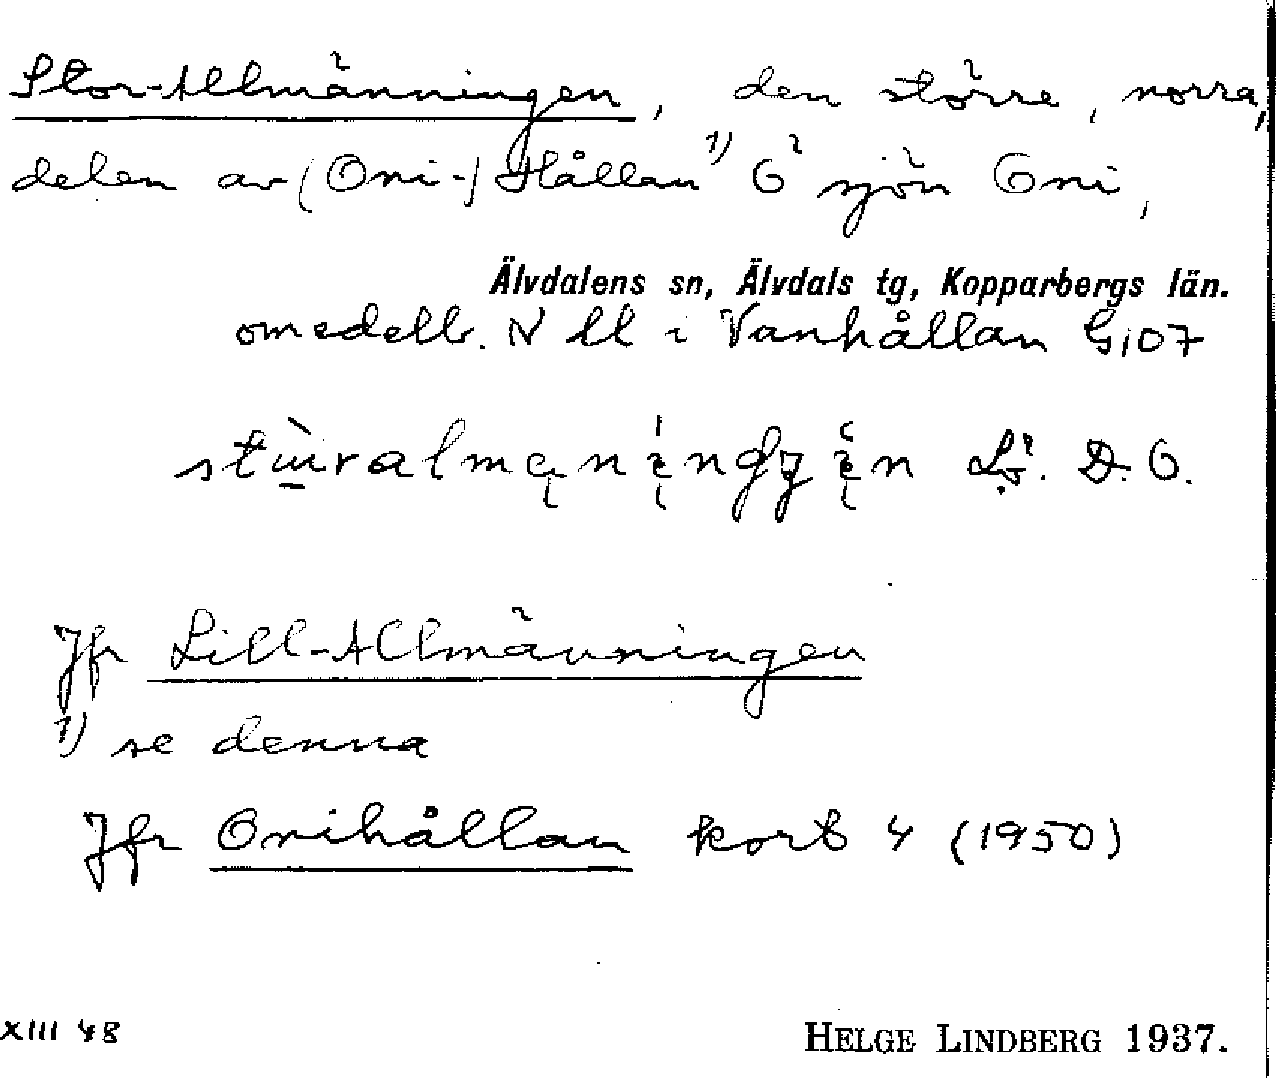 Stor-Allmänningen, den större, norra,
delen av (Oni-) Hållan 1) Ö sjön Oni,
Älvdalens sn, Älvdals tg, Kopparbergs län.
omedelb. N ll i Vanhållan G 107
D. O.
Jfr Lill-Allmänningen
1) se denna
Jfr Onihållan kort 4 (1950)
XIII 48
HELGE LINDBERG 1937.